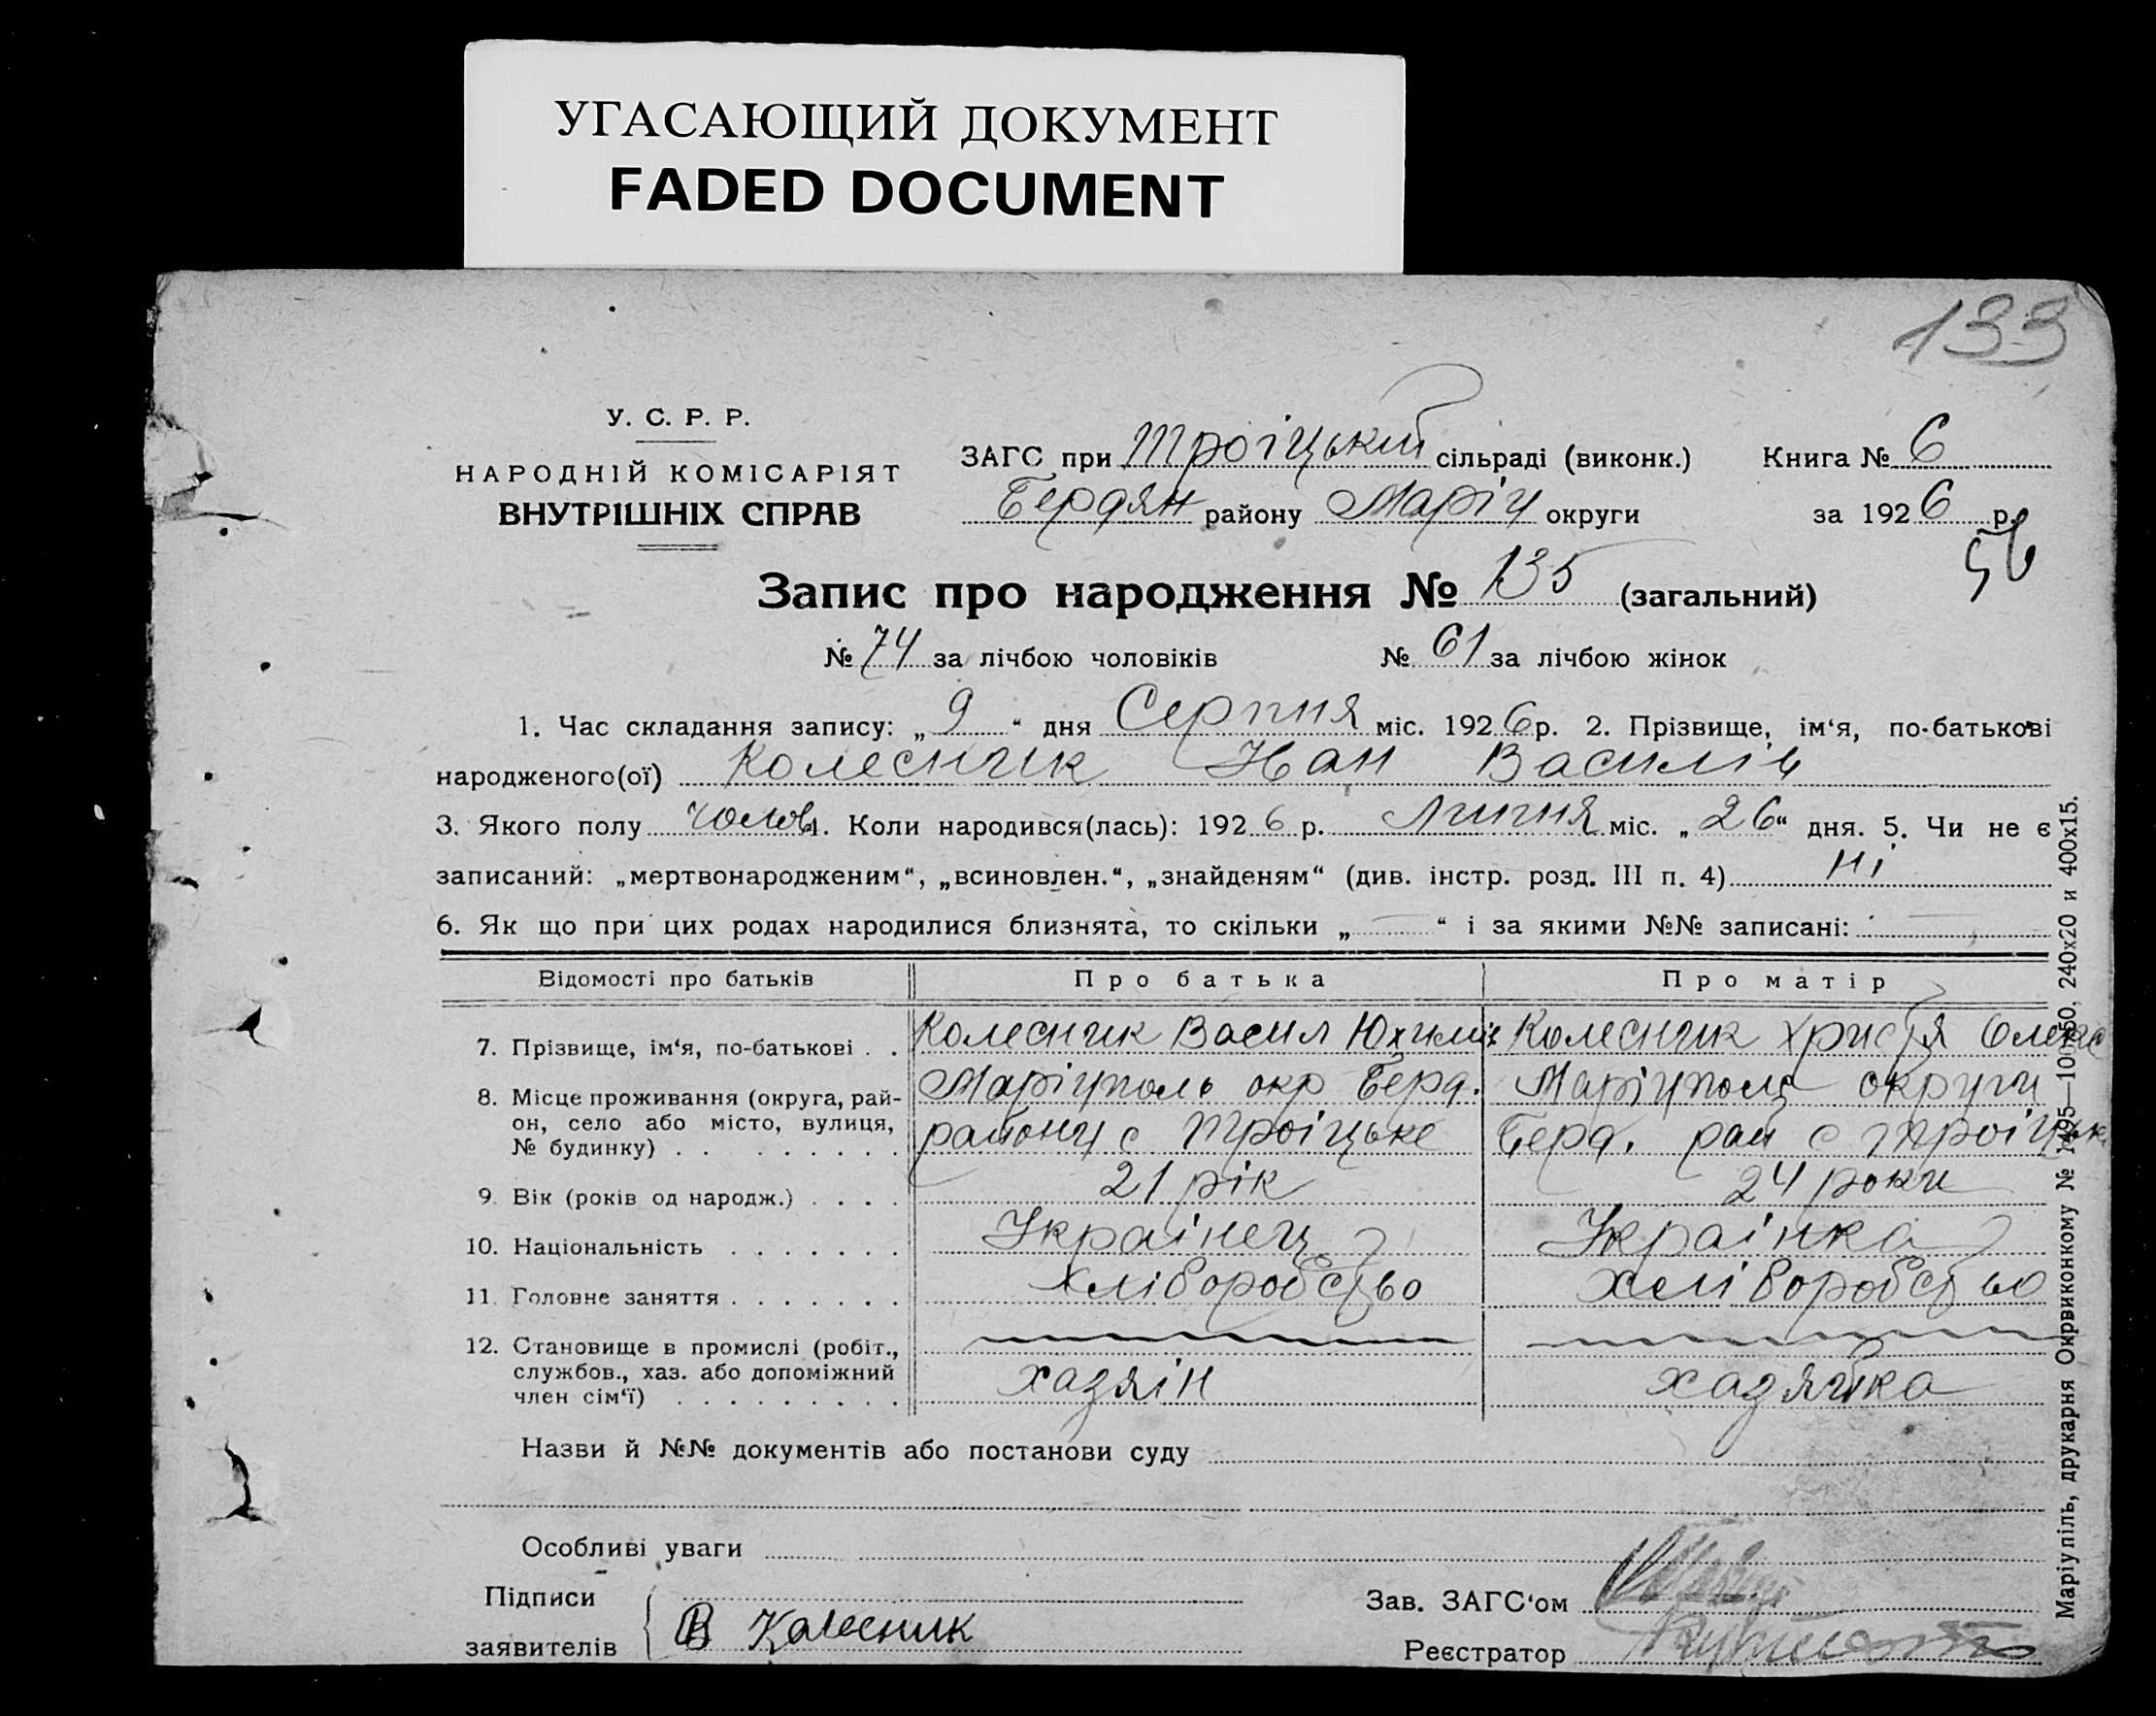 УГАСАЮЩИЙ ДОКУМЕНТ
FADED DOCUMENT
133
У. С. Р. Р.
НАРОДНІЙ КОМІСАРІЯТ
ВНУТРІШНІХ СПРАВ
ЗАГС при Троіцькій сільраді (виконк.) Книга № 6
Бердян району Маріч округи за 1926 р.
56
Запис про народження № 135 (загальний)
№ 74 за лічбою чоловіків № 61 за лічбою жінок
1. Час складання запису: „ 9 “ дня Серпня міс. 1926 р. 2. Прізвище, ім‘я, по-батькові
народженого(ої) Колесник Іван Василів
3. Якого полу чолов. 4. Коли народився(лась): 1926 р. Липня міс. „ 26 “ дня. 5. Чи не є
записаний: „мертвонародженим“, „всиновлен.“, „знайденям“ (див. інстр. розд. III п. 4) ні
6. Як що при цих родах народилися близнята, то скільки „ — “ і за якими №№ записані: —
Відомості про батьків Про батька Про матір
7. Прізвище, ім‘я, по-батькові . . Колесник Васил Юхимів Колесник Христя Олекс
8. Місце проживання (округа, рай- Маріуполь окр Берд. Маріуполь округи
он, село або місто, вулиця, району с Троіцьке Берд. рай с Троіцьк
№ будинку) . . . . . . . . .
9. Вік (років од народж.) . . . . 21 рік 24 роки
10. Національність . . . . . . . Украінец Украінка
11. Головне заняття . . . . . . . хліборобство хліборобство
12. Становище в промислі (робіт.,
службов., хаз. або допоміжний хазяін хазяйка
член сім‘ї) . . . . . . . . .
Назви й №№ документів або постанови суду
Особливі уваги
Підписи Зав. ЗАГС‘ом
заявителів В Колесник Реєстратор
Маріупіль, друкарня Окрвиконкому № 1495—100150. 240х20 и 400х15.